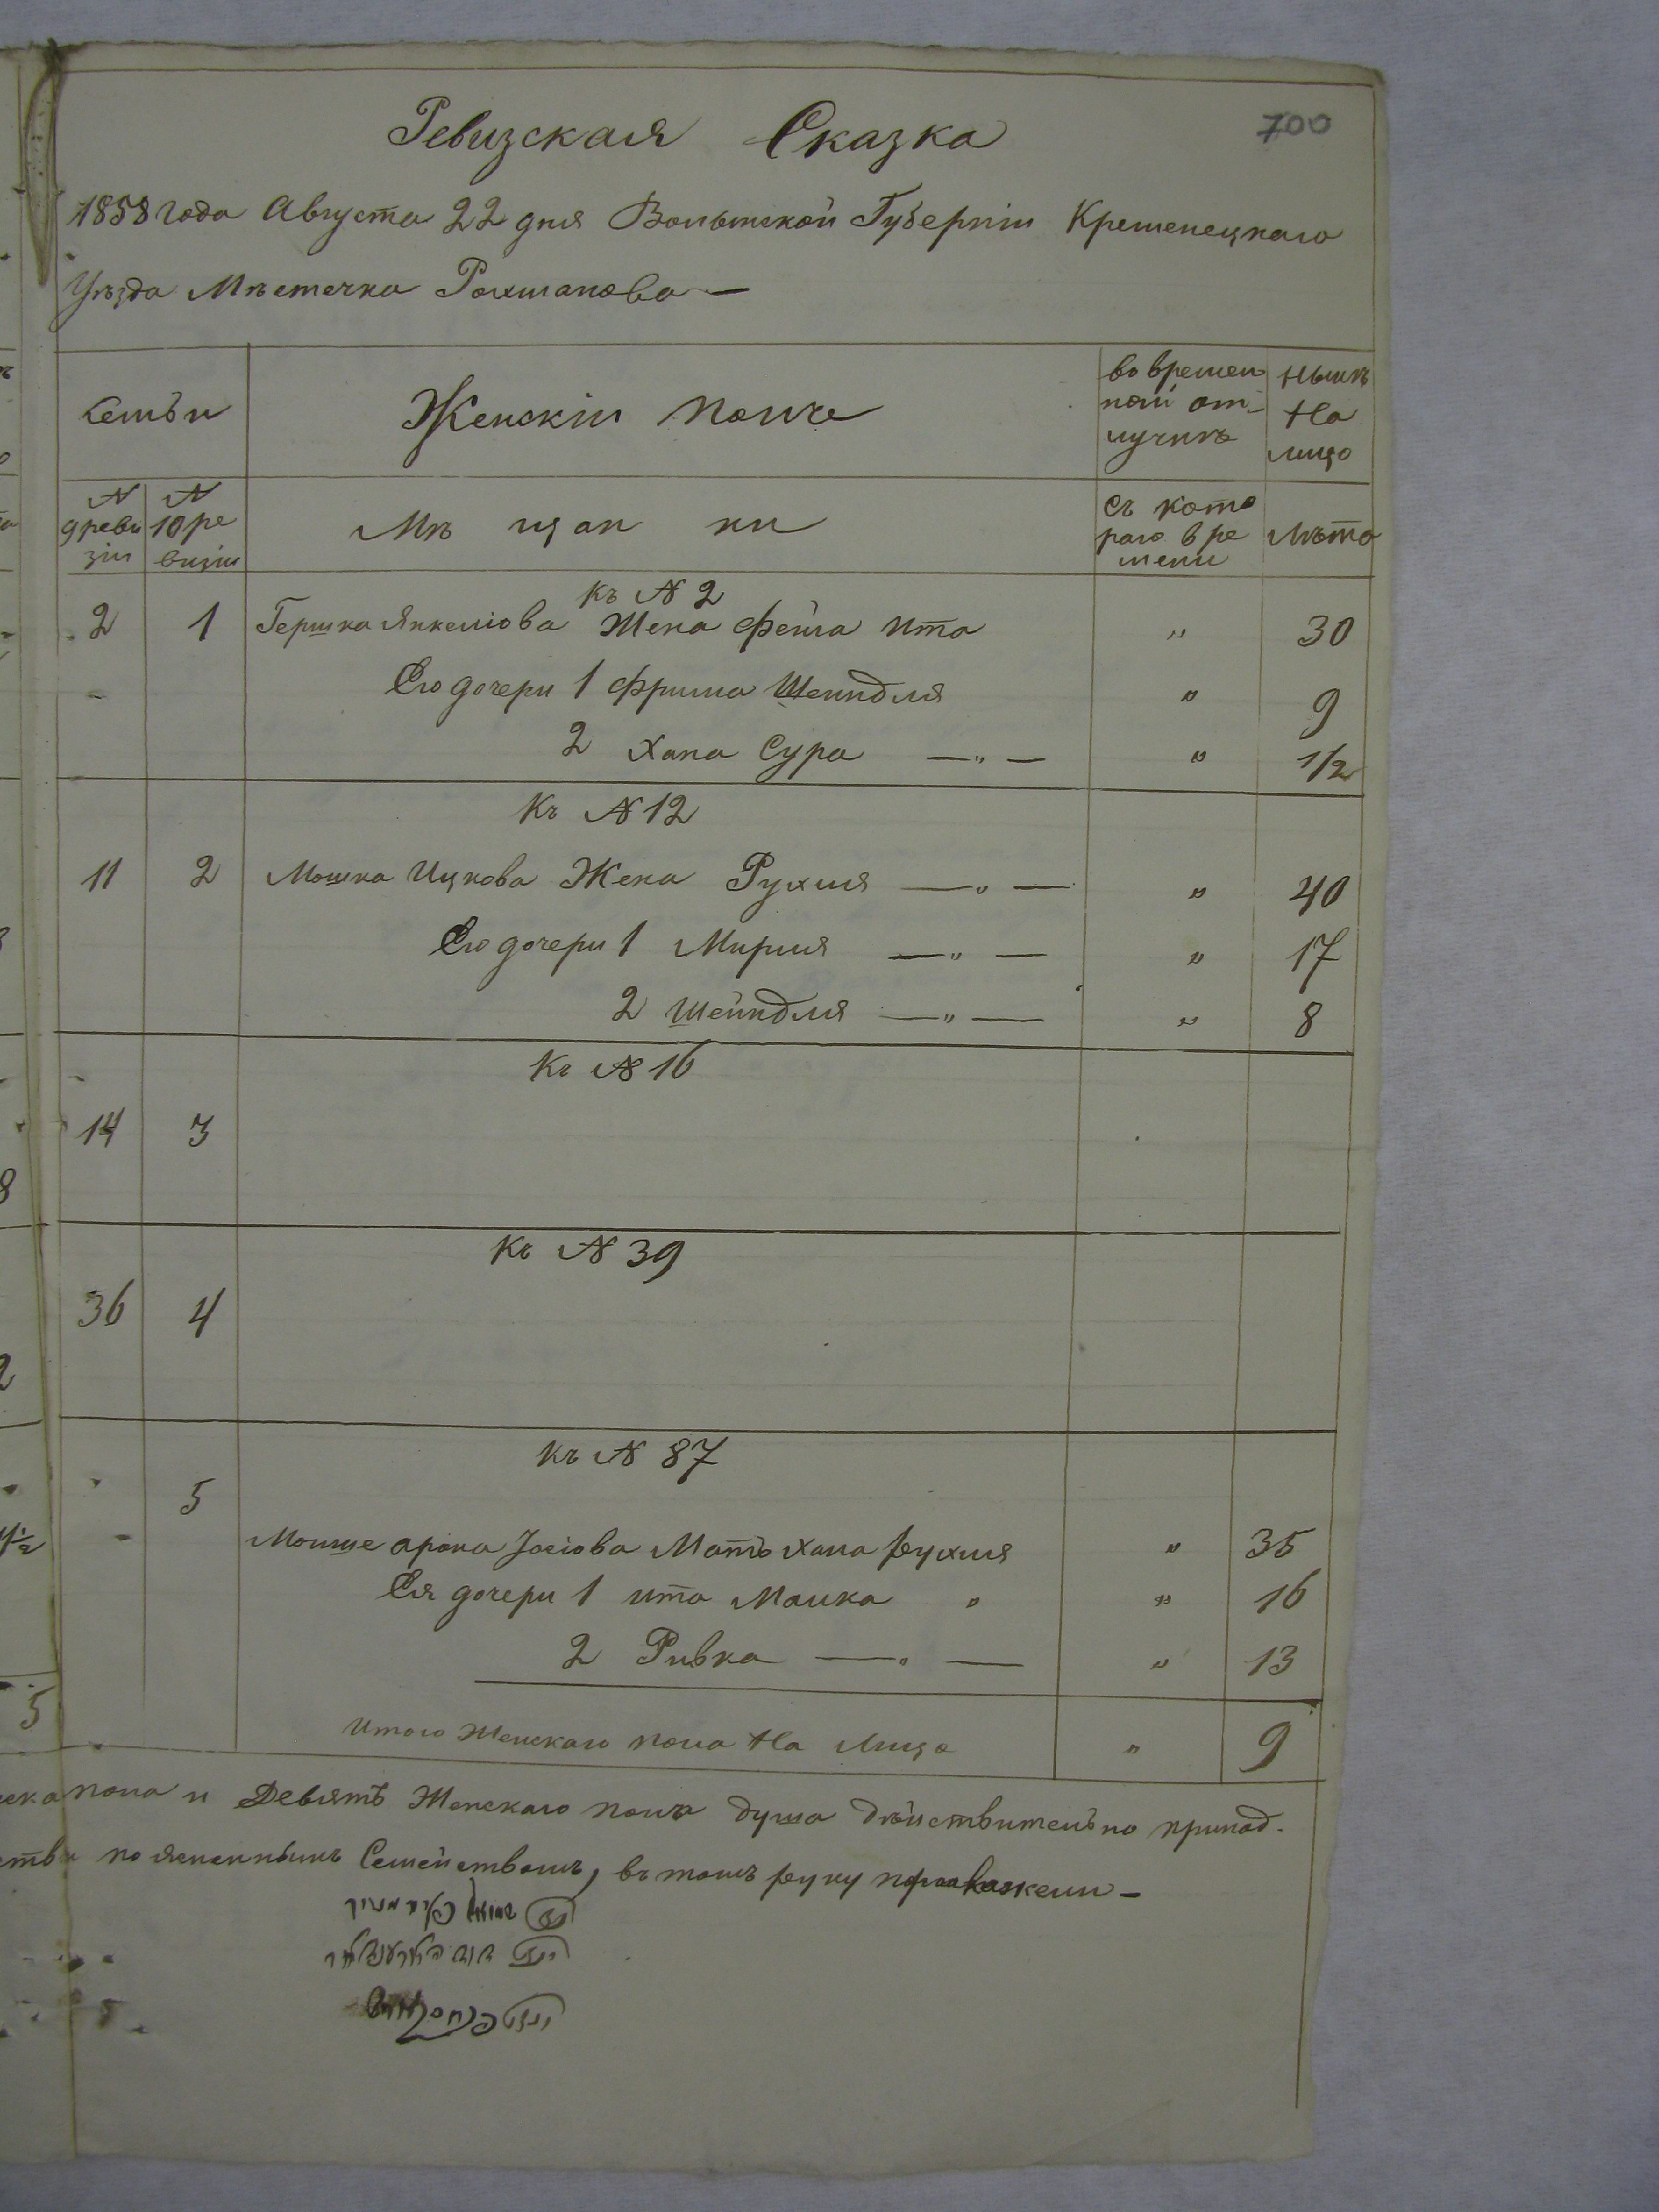 700
Ревизская Сказка
1858 года Августа 22 дня Волынской Губернiи Кременецкаго
Уѣзда Мѣстечка Рохманова —
Семьи
Женскiй полъ
во времен
ной от-
лучкѣ
Нынѣ
На
лицо
N
9 реви
зiи
N
10 ре
визiи
Мѣ щан ки
Съ кото
раго вре
мени
Лѣта
Къ N 2
2 1 Гершка Янкелiова Жена Фейга Ита " 30
Его дочери 1 Фрима Шейндля " 9
2 Хана Сура — " — " 1/2
Къ N 12
11 2 Мошка Ицкова Жена Рухля — " — " 40
Его дочери 1 Мирля — " — " 17
2 Шейндля — " — " 8
Къ N 16
14 3
Къ N 39
36 4
Къ N 87
5
Мойше арона Iосiова Мать Хана рухля " 35
Ея дочери 1 ита Малка " " 16
2 Ривка — " — " 13
Итого Женскаго пола На Лицо " 9
пола и Девять Женскаго пола душа дѣйствительно принад-
Семействомъ, въ томъ руку